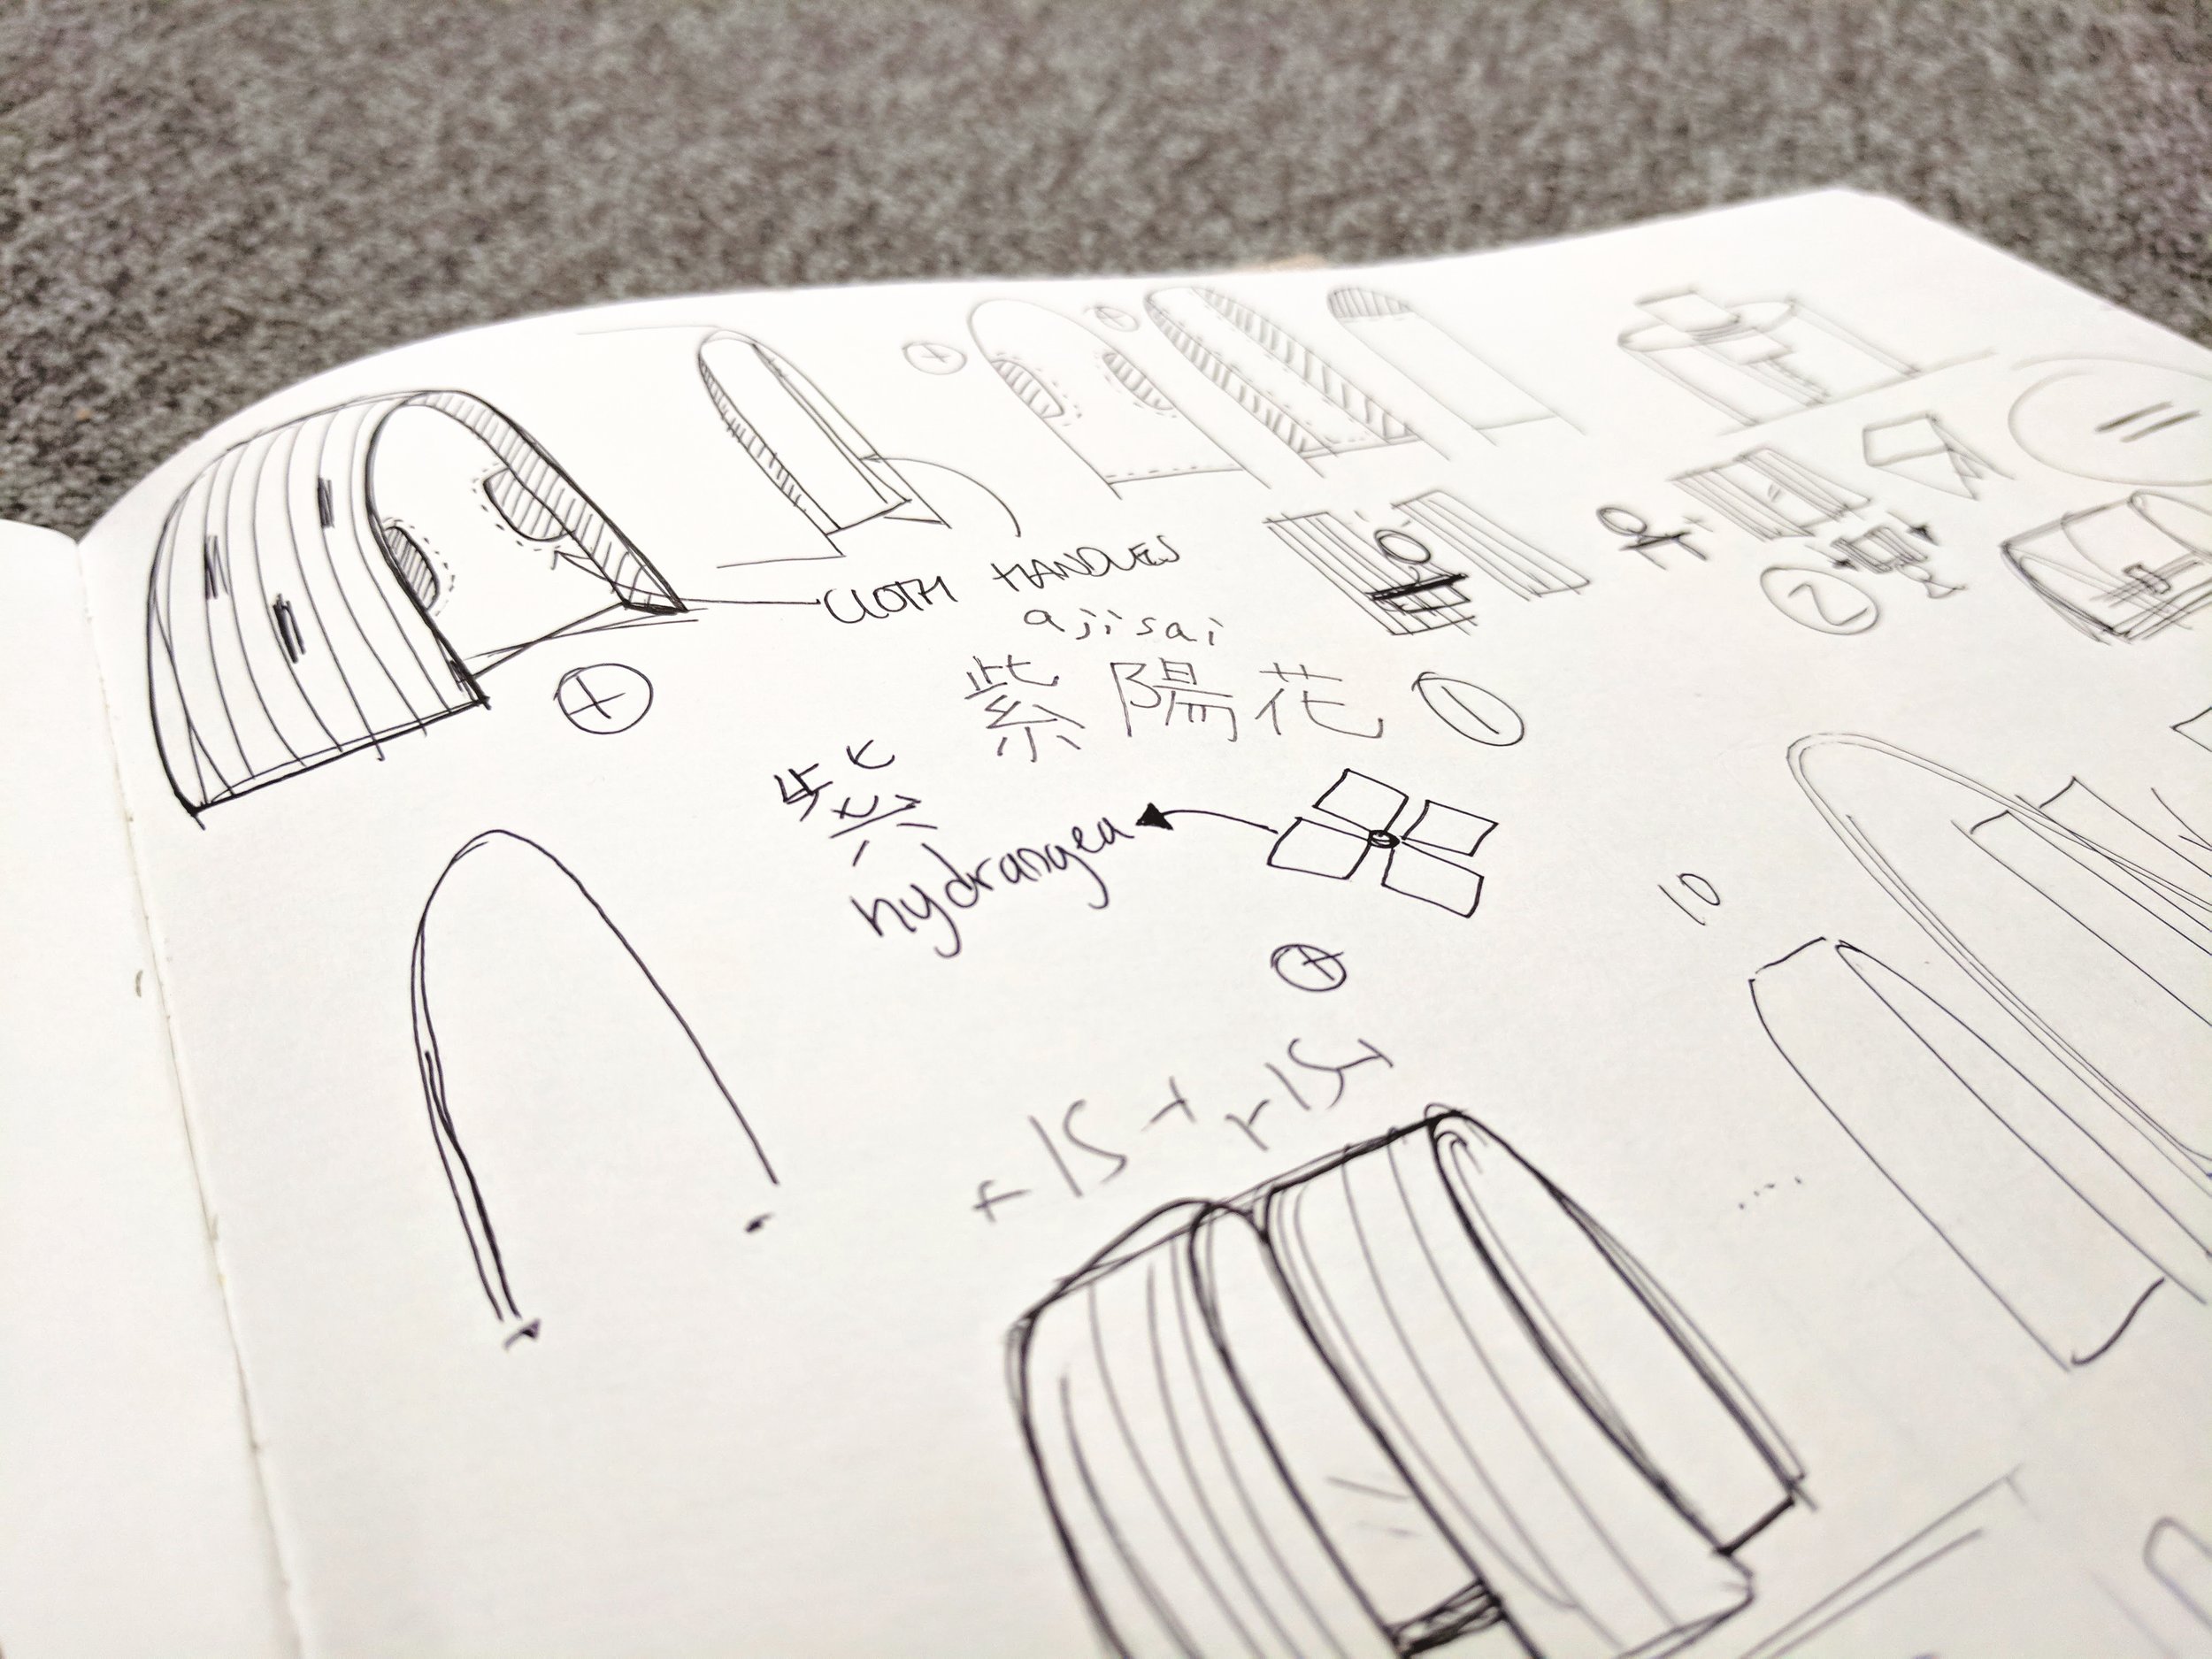 CLOTH HANDLES
ajisai
紫陽花 ①
紫
hydrangea
②
10
+15+r15